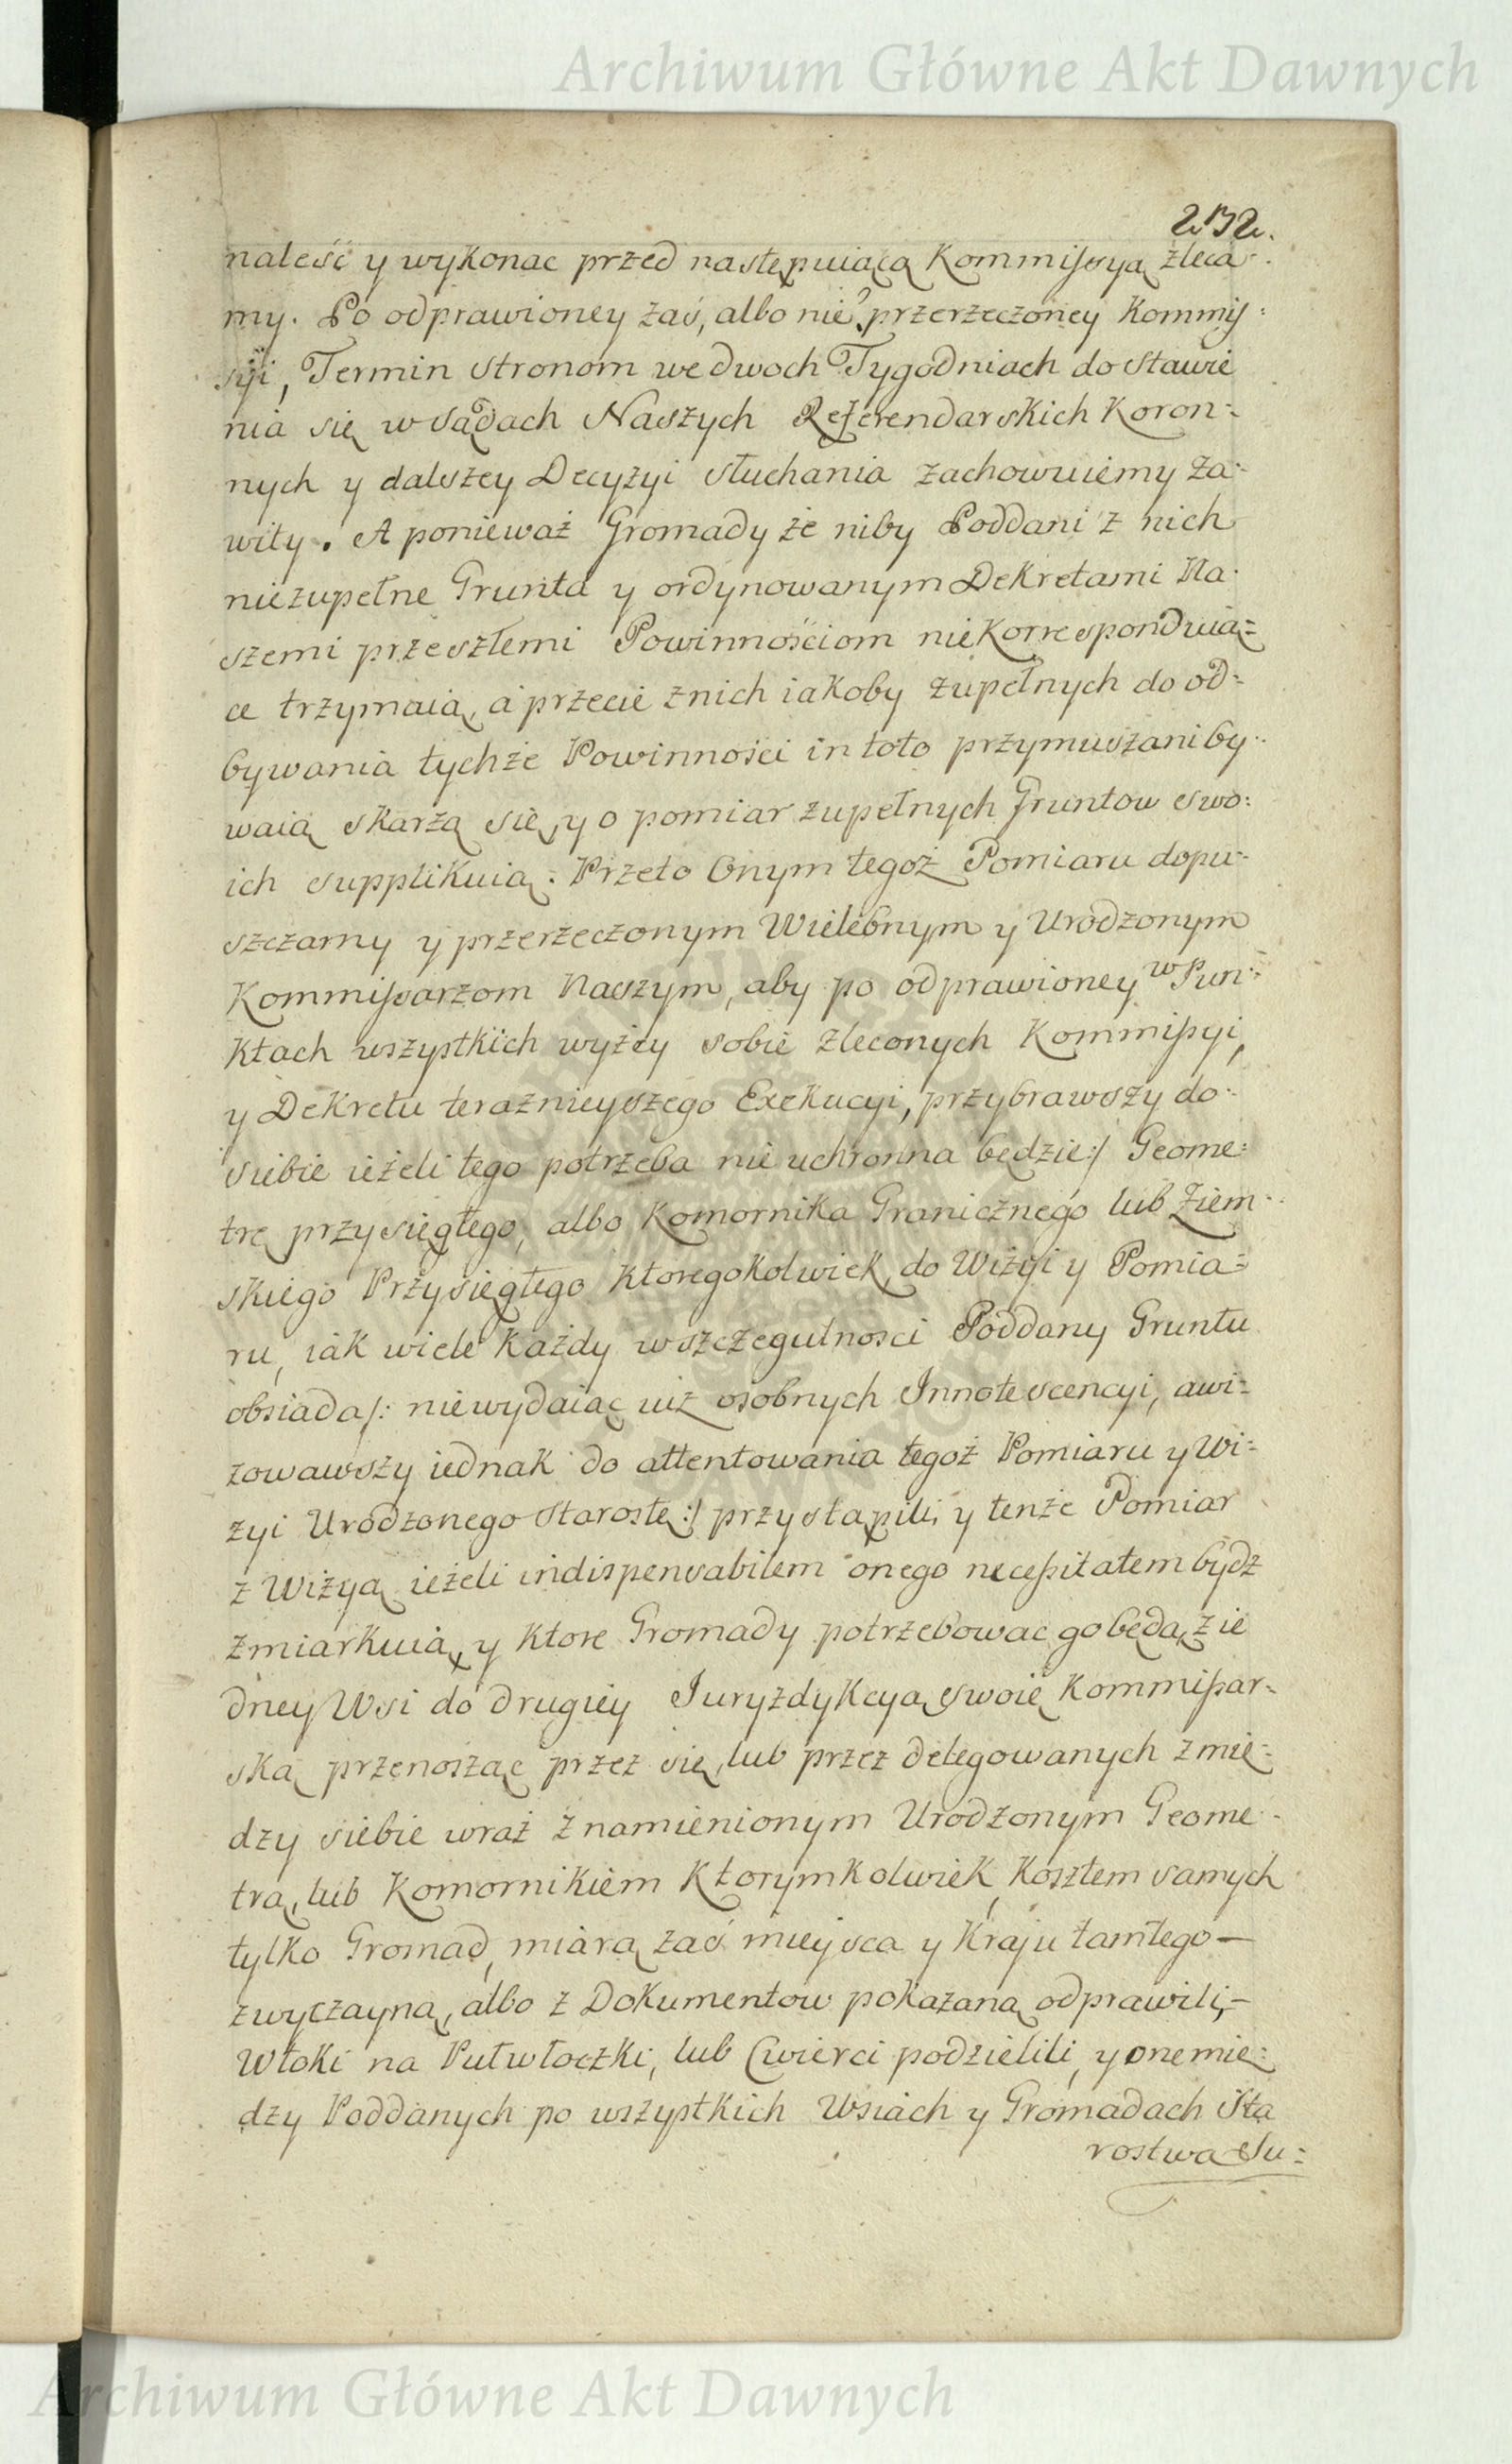 Archiwum Główne Akt Dawnych
232.
naleść y wykonac przed następuiącą Kommissyą zleca-
my. Po odprawioney zaś, albo nie, przerzeczoney Kommis:
syi, Termin stronom we dwoch Tygodniach do stawie
nia się w sądach Naszych Referendarskich Koron-
nych y dalszey Decyzyi słuchania zachowuiemy Za-
wity. A ponieważ Gromady że niby Poddani z nich
niezupełne Grunta y ordynowanym Dekretami Na-
szemi przeszłemi Powinnościom nie Korresponduią=
ce trzymaią, a przecie z nich iakoby zupełnych do od-
bywania tychże Powinności in toto przymuszani by-
waią skarżą się, y o pomiar zupełnych Gruntow swo:
ich supplikuią: Przeto Onym tegoż Pomiaru dopu-
szczamy y przerzeczonym Wielebnym y Urodzonym
Kommissarzom Naszym, aby po odprawioney w Pun-
ktach wszystkich wyżey sobie zleconych Kommissyi,
y Dekretu teraznieyszego Exekucyi, przybrawszy do-
siebie ieżeli tego potrzeba nie uchronna będzie:/ Geome:
trę przysięgłego, albo Komornika Granicznego lub Ziem-
skiego Przysięgłego Ktoregokolwiek, do Wizyi y Pomia=
ru, iak wiele Każdy w szczegulnosci Poddany Gruntu
obsiada/: niewydaiąc iuż osobnych Innotescencyi, awi=
zowawszy iednak do attentowania tegoż Pomiaru y Wi=
zyi Urodzonego Starostę:/ przystąpili, y tenże Pomiar
z Wizyą ieżeli indispensabilem onego necessitatem bydz
zmiarkuią, y Ktore Gromady potrzebowac go będą, z ie
dney Wsi do drugiey Juryzdykcyą swoię Kommissar-
ską przenosząc przez się, lub przez delegowanych z mię-
dzy siebie wraz z namienionym Urodzonym Geome-
trą, lub Komornikiem Ktorymkolwiek, Kosztem samych
tylko Gromad, miarą zaś mieysca y Kraju tamtego—
zwyczayną, albo z Dokumentow pokazaną odprawili,—
Włoki na Pułwłoczki, lub Cwierci podzielili, y one mię:
dzy Poddanych po wszystkich Wsiach y Gromadach Sta
rostwa Su=
Archiwum Główne Akt Dawnych